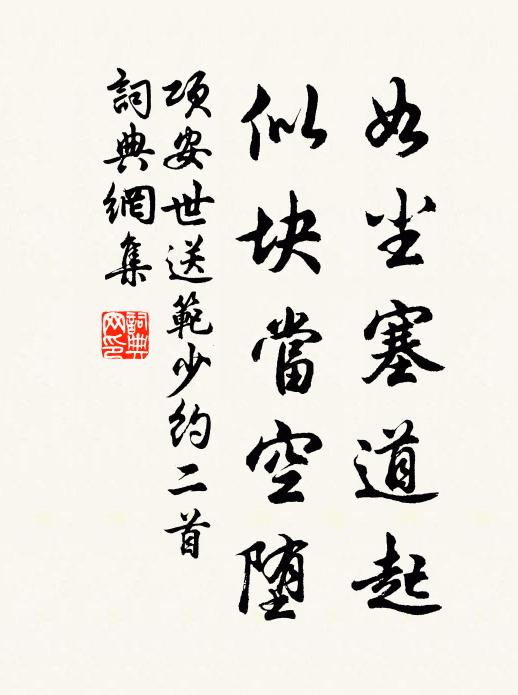 如尘塞道起
似块當空堕
项安世送範少约二首
詞典網集
詞典网印